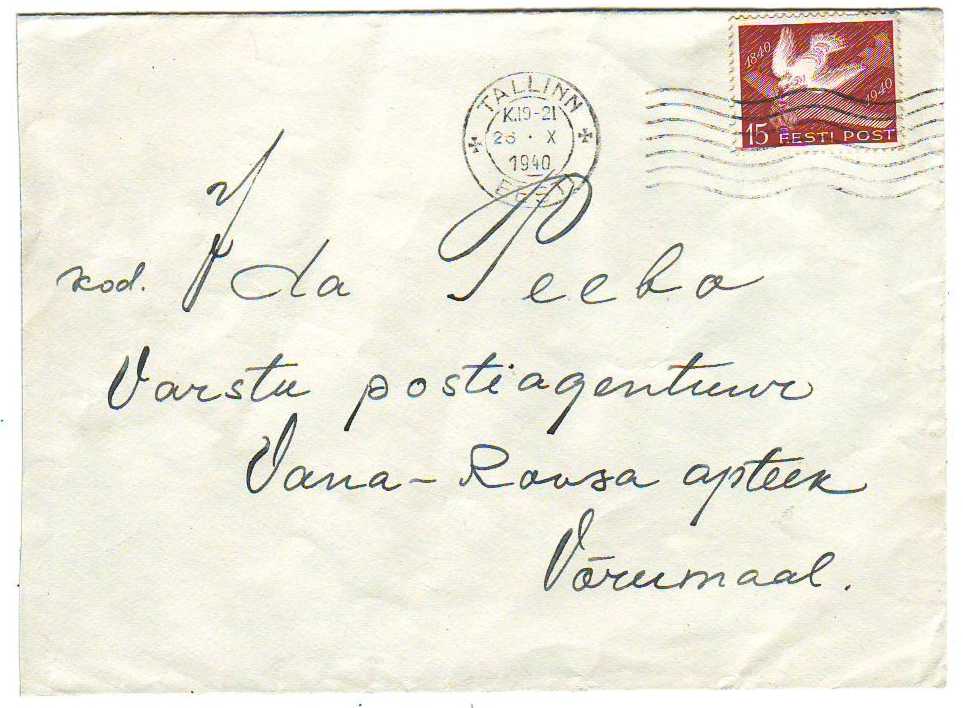 TALLINN
K.19-21
26 · X
1940
EESTI
1840
1940
15 EESTI POST
kod. Ida Peebo
Varstu postiagentuur
Vana-Roosa apteek
Võrumaal.